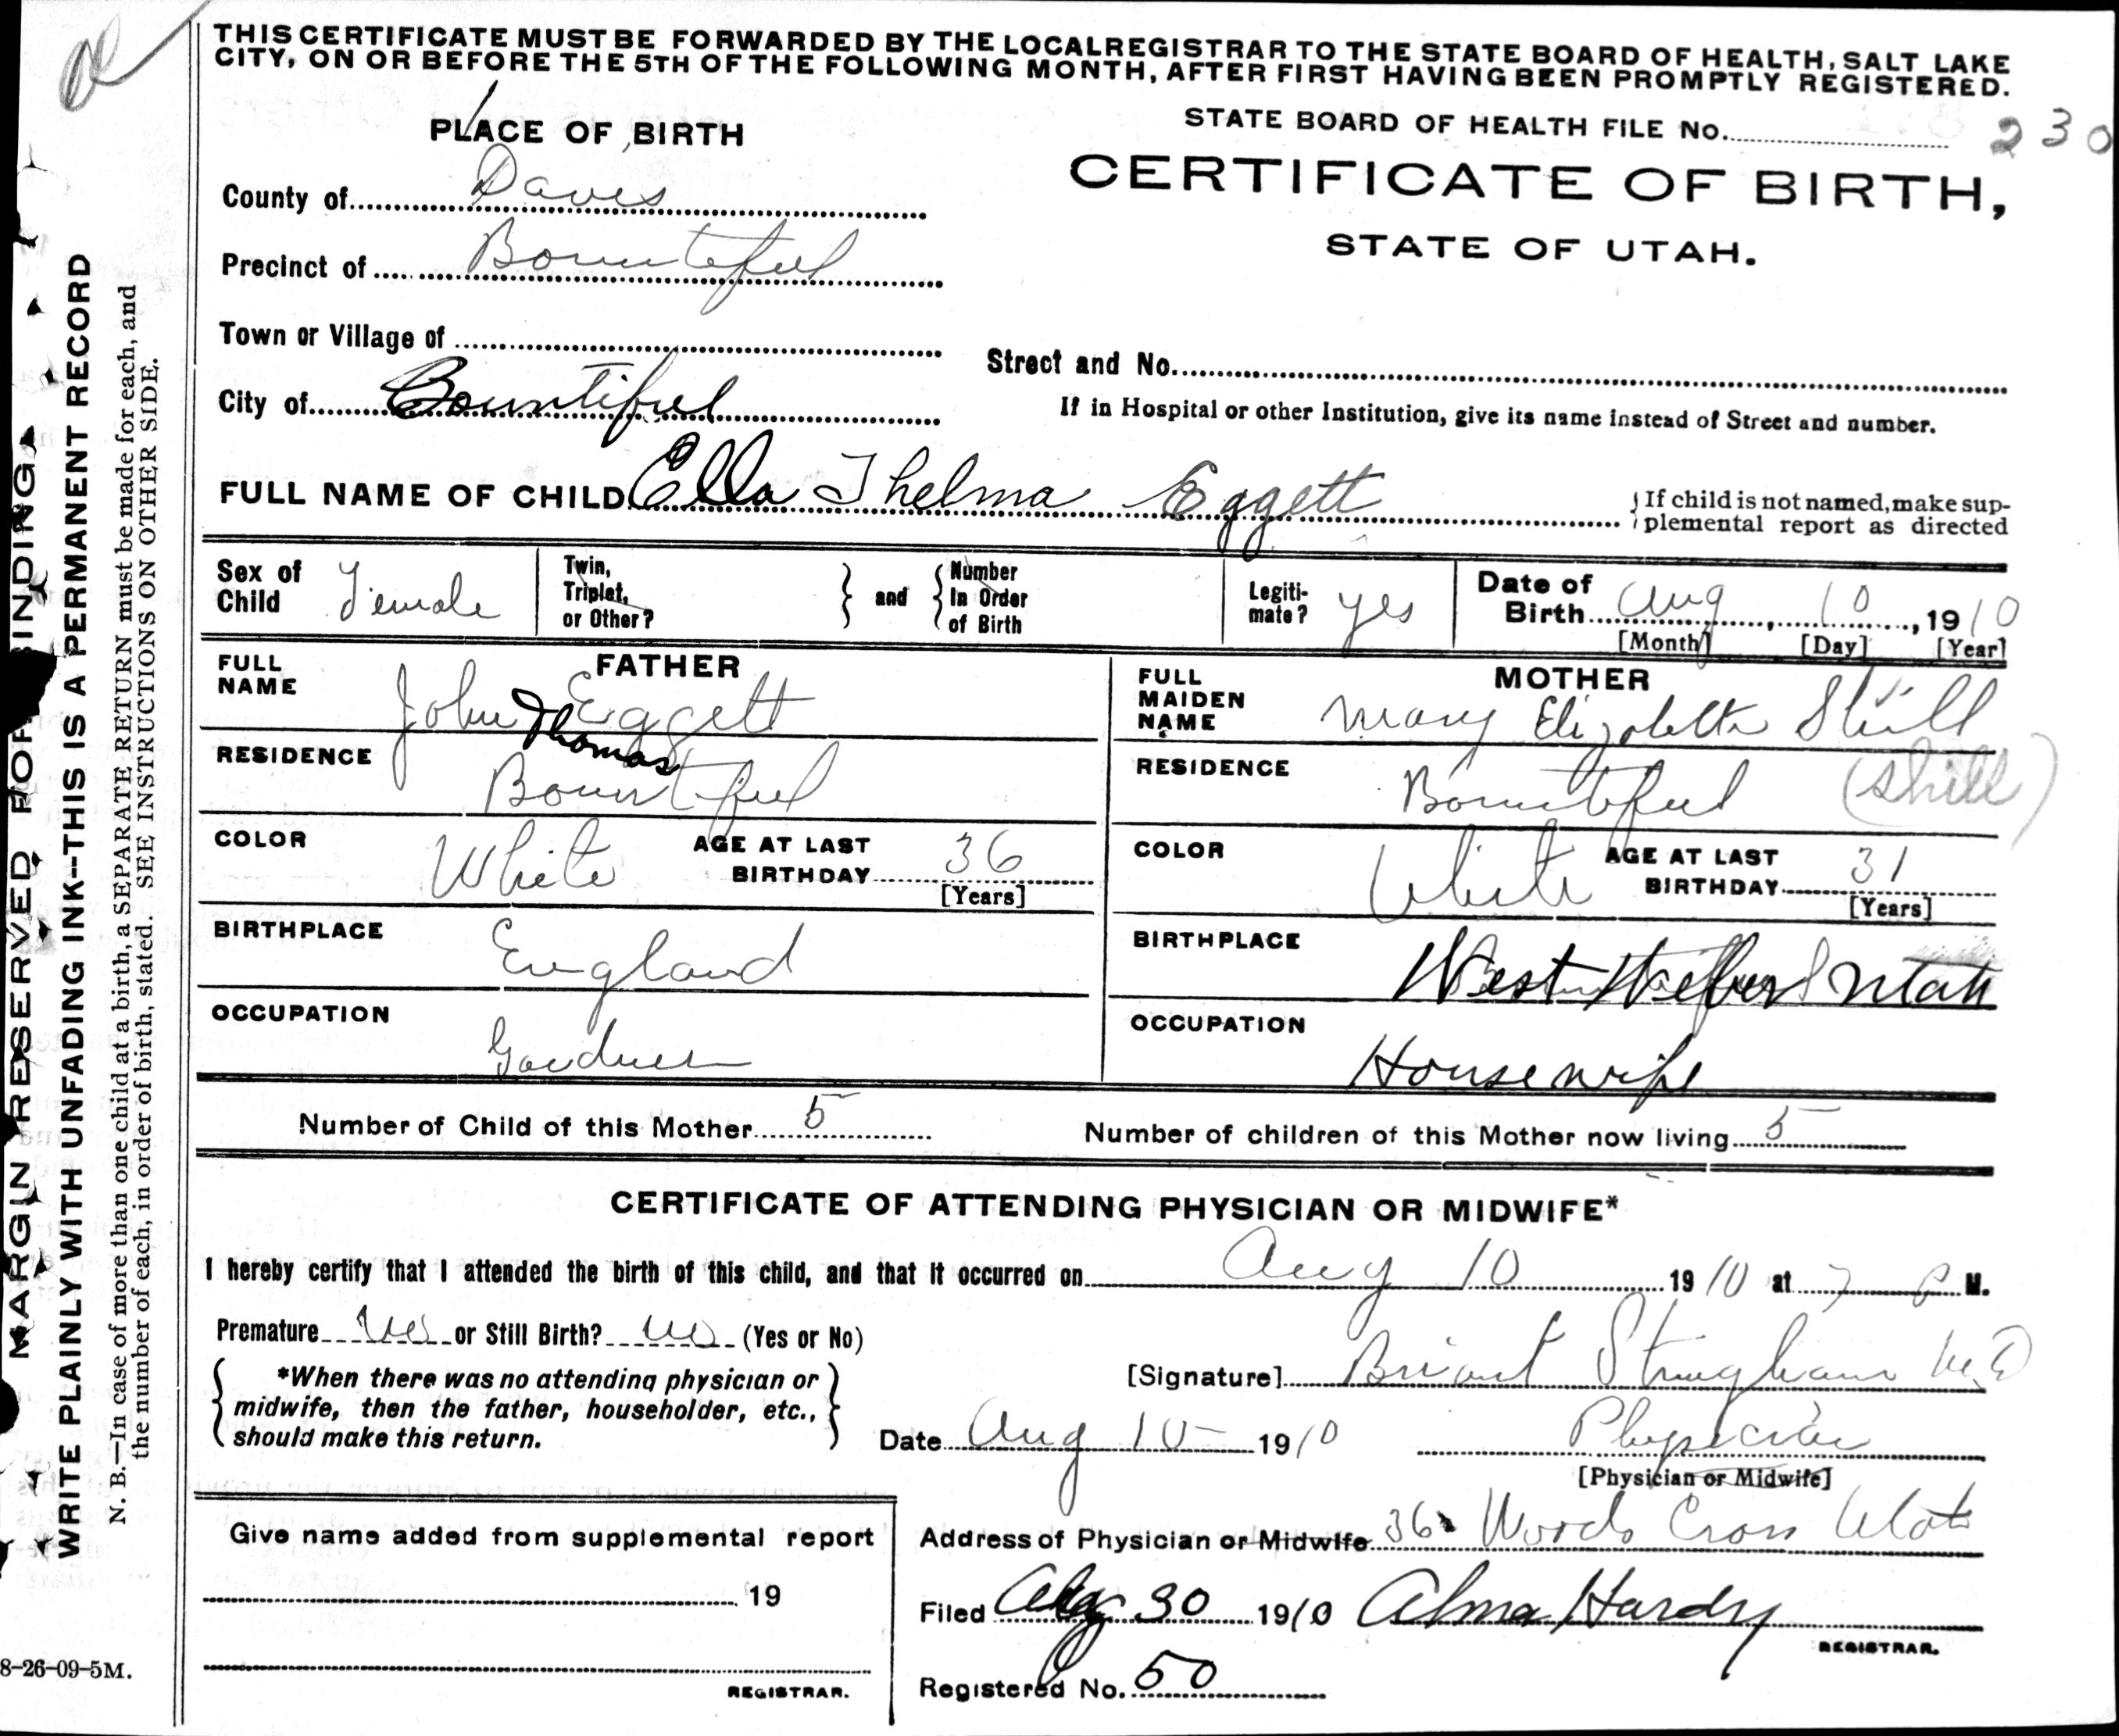 THIS CERTIFICATE MUST BE FORWARDED BY THE LOCAL REGISTRAR TO THE STATE BOARD OF HEALTH, SALT LAKE
CITY, ON OR BEFORE THE 5TH OF THE FOLLOWING MONTH, AFTER FIRST HAVING BEEN PROMPTLY REGISTERED.
PLACE OF BIRTH
STATE BOARD OF HEALTH FILE No. 230
CERTIFICATE OF BIRTH,
STATE OF UTAH.
County of Davis
Precinct of Bountiful
Town or Village of
Street and No.
City of Bountiful
If in Hospital or other Institution, give its name instead of Street and number.
FULL NAME OF CHILD Ella Thelma Eggett
If child is not named, make sup-
plemental report as directed
Sex of Child Female
Twin, Triplet, or Other?
and
Number In Order of Birth
Legiti-mate? yes
Date of Birth Aug 10, 1910
[Month] [Day] [Year]
FATHER
FULL NAME John Thomas Eggett
RESIDENCE Bountiful
COLOR White
AGE AT LAST BIRTHDAY 36
[Years]
BIRTHPLACE England
OCCUPATION Gardner
MOTHER
FULL MAIDEN NAME Mary Elizabeth Shill
(Shill)
RESIDENCE Bountiful
COLOR White
AGE AT LAST BIRTHDAY 31
[Years]
BIRTHPLACE West Weber Utah
OCCUPATION Housewife
Number of Child of this Mother 5
Number of children of this Mother now living 5
CERTIFICATE OF ATTENDING PHYSICIAN OR MIDWIFE*
I hereby certify that I attended the birth of this child, and that it occurred on Aug 10 1910 at 7 P M.
Premature no or Still Birth? no (Yes or No)
*When there was no attending physician or
midwife, then the father, householder, etc.,
should make this return.
[Signature] Briant Stringham M.D
Date Aug 10 1910
Physician
[Physician or Midwife]
Give name added from supplemental report
19
REGISTRAR.
Address of Physician or Midwife Woods Cross Utah
Filed Aug 30 1910 Alma Hardy
REGISTRAR.
Registered No. 50
8-26-09-5M.
MARGIN RESERVED FOR BINDING
WRITE PLAINLY WITH UNFADING INK--THIS IS A PERMANENT RECORD
N. B.—In case of more than one child at a birth, a SEPARATE RETURN must be made for each, and
the number of each, in order of birth, stated. SEE INSTRUCTIONS ON OTHER SIDE.